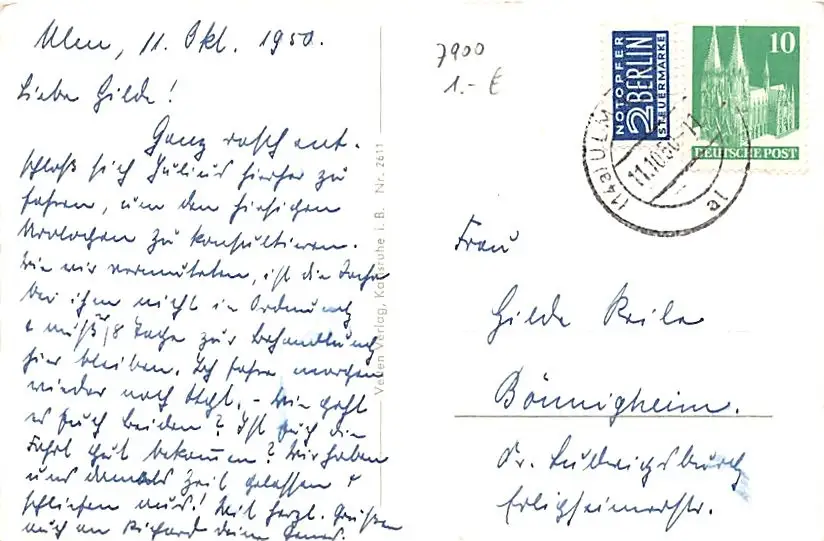 Ulm, 11. Okt. 1950.
Liebe Hilde!
Ganz rasch ent-
schloß sich Julius hierher zu
fahren, um den hiesigen
Urologen zu konsultieren.
Wie wir vermuteten, ist die Sache
bei ihm nicht in Ordnung
u. muß er 8 Tage zur Behandlung
hier bleiben. Ich fahre morgen
wieder nach . - Wie geht
es Euch beiden? Ist Euch die
Fahrt gut bekommen? Wir haben
uns damals Zeit gelassen u.
schliefen aus! Mit herzl. Grüßen
auch an Richard deine
Verlag, Karlsruhe i. B. Nr. 2611
7900
1.- €
NOTOPFER
2 BERLIN
STEUERMARKE
10
DEUTSCHE POST
(14a) ULM
11.10.50
Frau
Hilde Keile
Bönnigheim.
Kr. Ludwigsburg
Erligheimerstr.